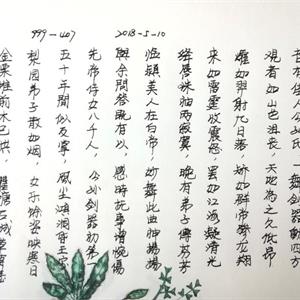 999-407
2018-5-10
昔有佳人公孫氏 一舞劍器動四方
觀者如山色沮喪 天地為之久低昂
㸌如羿射九日落 矯如群帝驂龍翔
來如雷霆收震怒 罷如江海凝清光
絳唇珠袖兩寂寞 晚有弟子傳芬芳
臨潁美人在白帝 妙舞此曲神揚揚
與余問答既有以 感時撫事增惋傷
先帝侍女八千人 公孫劍器初第一
五十年間似反掌 風塵澒洞昏王室
梨園弟子散如煙 女樂餘姿映寒日
金粟堆前木已拱 瞿塘石城草蕭瑟